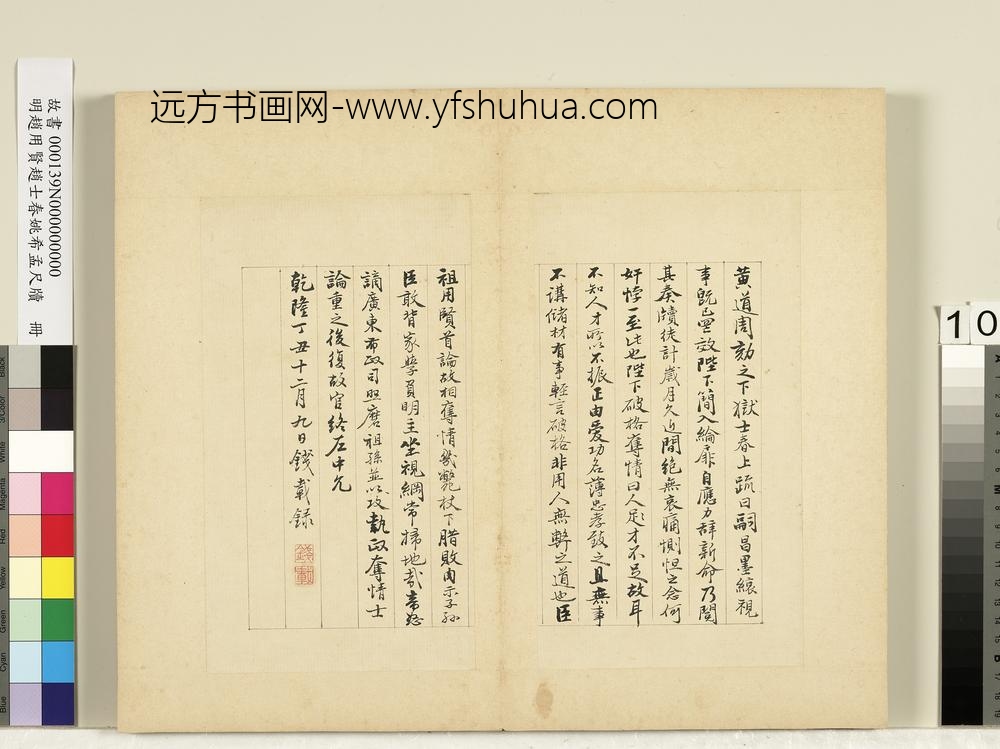 远方书画网-www.yfshuhua.com
故書 000139N000000000
明趙用賢趙士春姚希孟尺牘 冊
10
黃道周劾之下獄士春上疏曰嗣昌墨縗視
事既已罔效陛下簡入綸扉自應力辭新命乃閱
其奏牘徒計歲月久近間絕無哀痛惻怛之念何
奸悖一至此也陛下破格奪情曰人足才不足故耳
不知人才所以不振正由愛功名薄忠孝致之且無事
不講儲材有事輕言破格非用人無弊之道也臣
祖用賢首論故相奪情幾斃杖下腊敗肉示子孫
臣敢背家學負明主坐視綱常掃地哉帝怒
謫廣東布政司照磨祖孫並以攻執政奪情士
論重之後復故官終左中允
乾隆丁丑十二月九日錢載録
錢載
Black
3/Color
White
Magenta
Red
Yellow
Green
Cyan
Blue